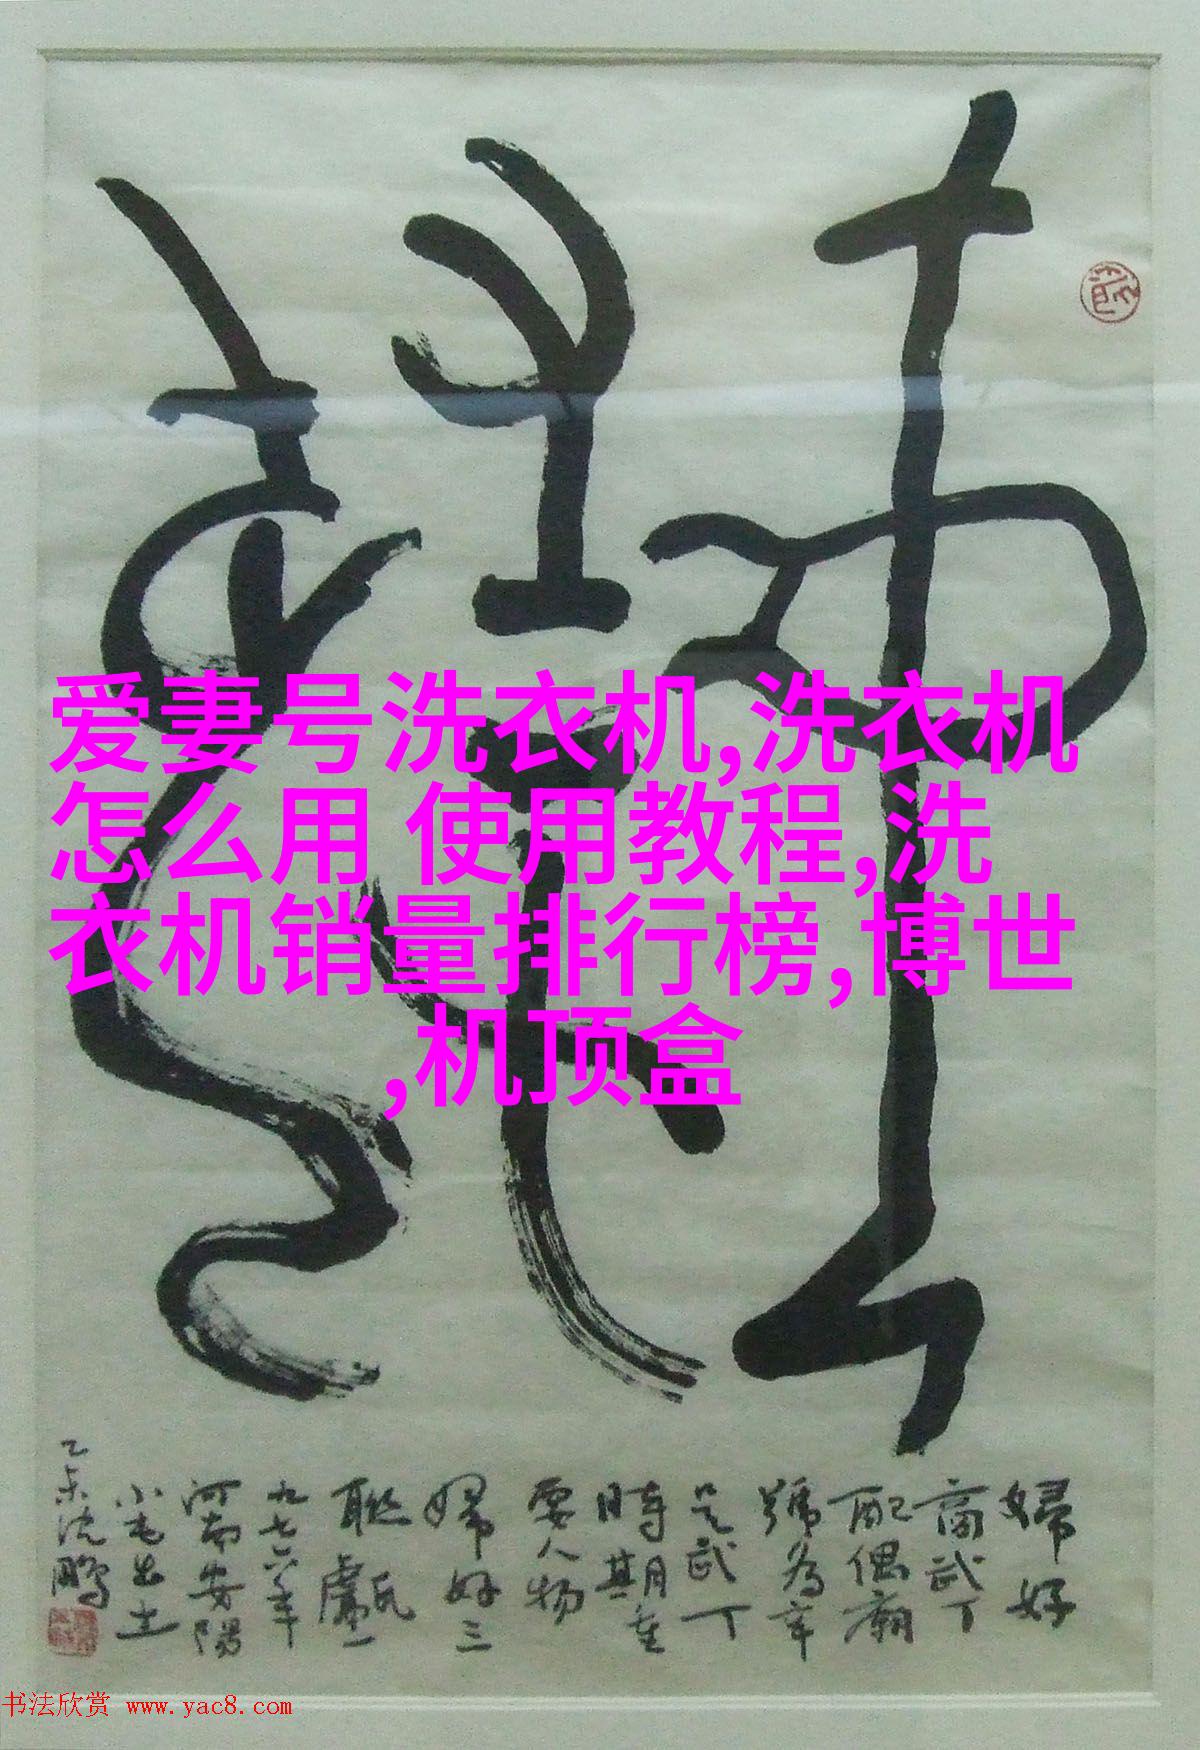 爱妻号洗衣机,洗衣机
怎么用 使用教程,洗
衣机销量排行榜,博世
,机顶盒
婦好
商武丁
配偶廟
號為辛
是武丁
時期重
要人物
婦好三
聯甗一
九七六年
河南安陽
小屯出土
乙未沈鵬
书法欣赏 www.yac8.com